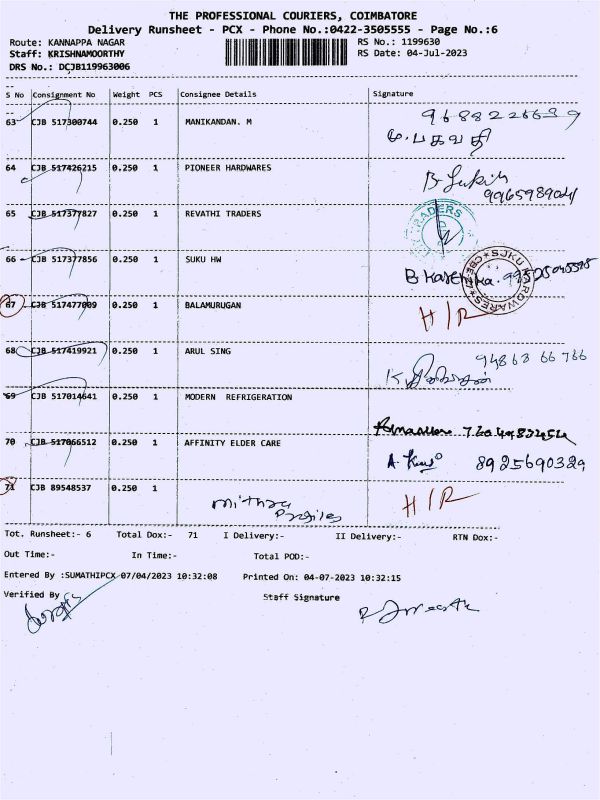 THE PROFESSIONAL COURIERS, COIMBATORE
Delivery Runsheet - PCX - Phone No.:0422-3505555 - Page No.:6
Route: KANNAPPA NAGAR RS No.: 1199630
Staff: KRISHNAMOORTHY RS Date: 04-Jul-2023
DRS No.: DCJB119963006
S No Consignment No Weight PCS Consignee Details Signature
63 CJB 517300744 0.250 1 MANIKANDAN. M 9688226639
மு.பகவதி
64 CJB 517426215 0.250 1 PIONEER HARDWARES
9965989041
65 CJB 517377827 0.250 1 REVATHI TRADERS TRADERS
66 CJB 517377856 0.250 1 SUKU HW
HARDWARES
67 CJB 517477009 0.250 1 BALAMURUGAN H/R
68 CJB 517419921 0.250 1 ARUL SING 94863 66766
69 CJB 517014641 0.250 1 MODERN REFRIGERATION
70 CJB 517066512 0.250 1 AFFINITY ELDER CARE 8925690329
71 CJB 89548537 0.250 1 H/R
Mithra
Tot. Runsheet:- 6 Total Dox:- 71 I Delivery:- II Delivery:- RTN Dox:-
Out Time:- In Time:- Total POD:-
Entered By :SUMATHIPCX 07/04/2023 10:32:08 Printed On: 04-07-2023 10:32:15
Verified By Staff Signature